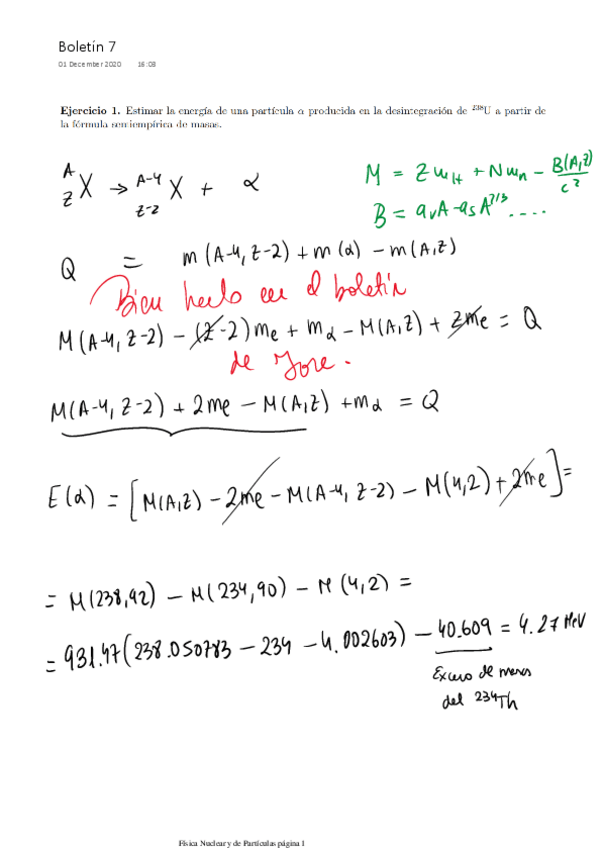 Boletín 7
01 December 2020 16:08
Ejercicio 1. Estimar la energía de una partícula α producida en la desintegración de ²³⁸U a partir de
la fórmula semiempírica de masas.
ᴬ_Z X → ᴬ⁻⁴_Z-2 X + α
M = Z m_H + N m_n - B(A,Z)/c²
B = a_v A - a_s A^2/3 ....
Q = m(A-4, Z-2) + m(α) - m(A,Z)
Bien hecho en el boletín
M(A-4, Z-2) - (Z-2)me + mα - M(A,Z) + Zme = Q
de Jore.
M(A-4, Z-2) + 2me - M(A,Z) + mα = Q
E(α) = [M(A,Z) - 2me - M(A-4, Z-2) - M(4,2) + 2me] =
= M(238,92) - M(234,90) - M(4,2) =
= 931.47(238.050783 - 234 - 4.002603) - 40.609 = 4.27 MeV
Exceso de masa
del 234Th
Física Nuclear y de Partículas página 1